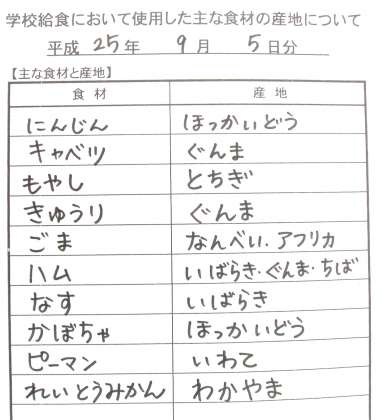 学校給食において使用した主な食材の産地について
平成 25 年 9 月 5 日分
【主な食材と産地】
食材 産地
にんじん ほっかいどう
キャベツ ぐんま
もやし とちぎ
きゅうり ぐんま
ごま なんべい、アフリカ
ハム いばらき・ぐんま・ちば
なす いばらき
かぼちゃ ほっかいどう
ピーマン いわて
れいとうみかん わかやま